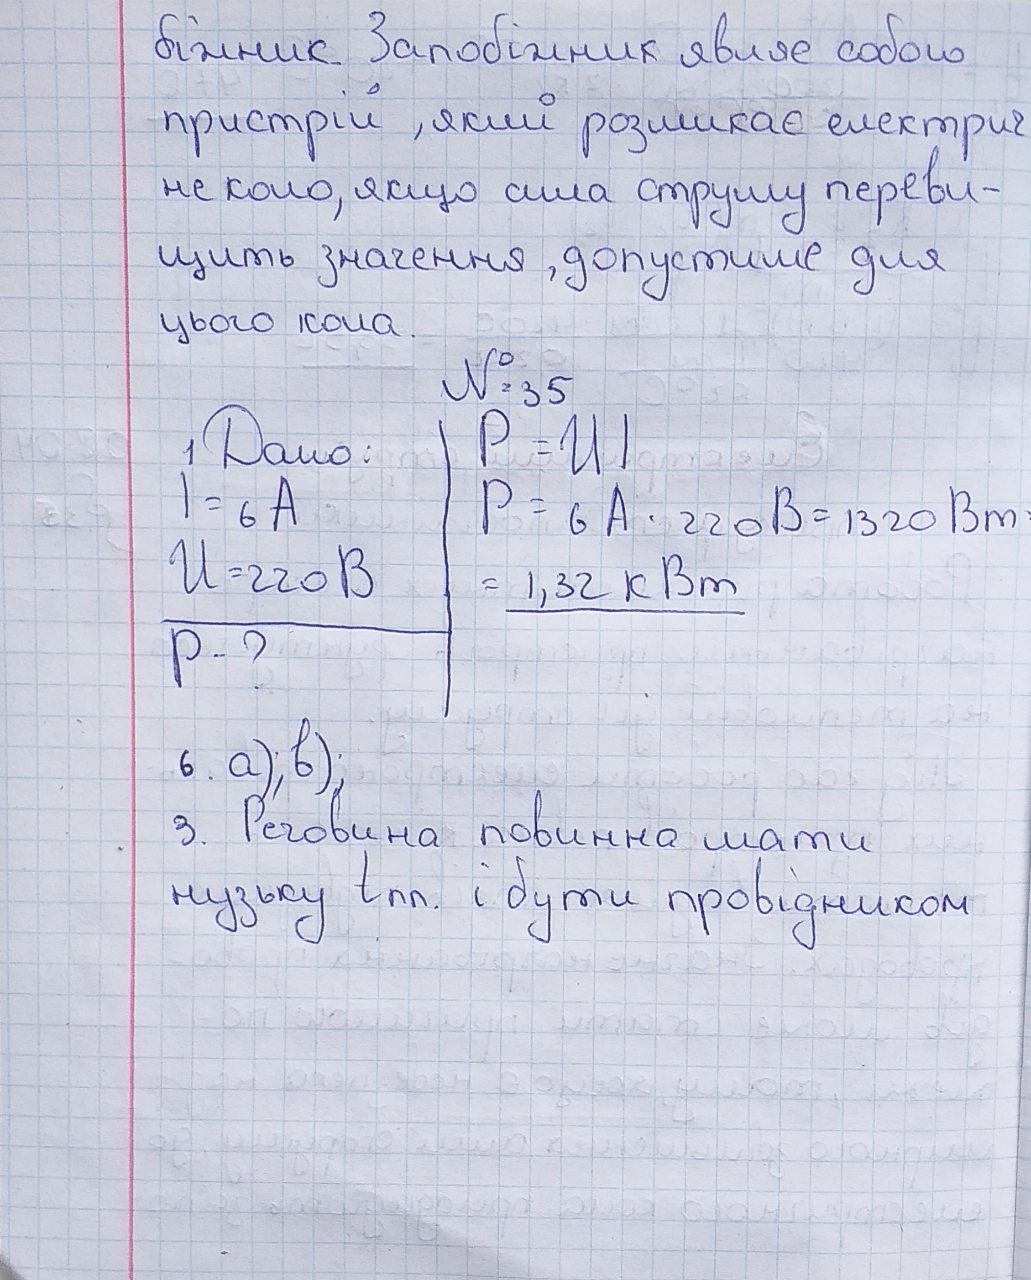 біжник. Запобіжник являє собою
пристрій, який розмикає електрич
не коло, якщо сила струму переви-
щить значення, допустиме для
цього кола.
№35
1 Дано:
I = 6 А
U = 220 В
P - ?
P = UI
P = 6 А · 220 В = 1320 Вт =
= 1,32 кВт
6. а); в);
3. Речовина повинна мати
нузьку tпл. і бути провідником